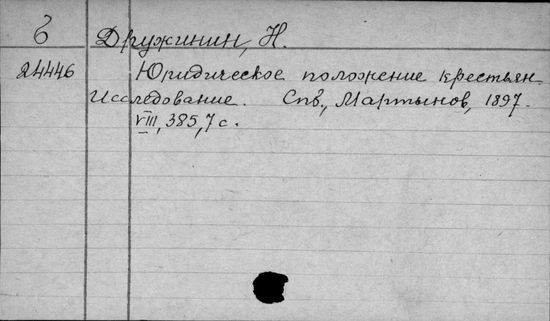 6 Дружинин, Н.
24446 Юридическое положение крестьян.
Исследование. Спб., Мартынов, 1897.
VIII, 385, 7 с.